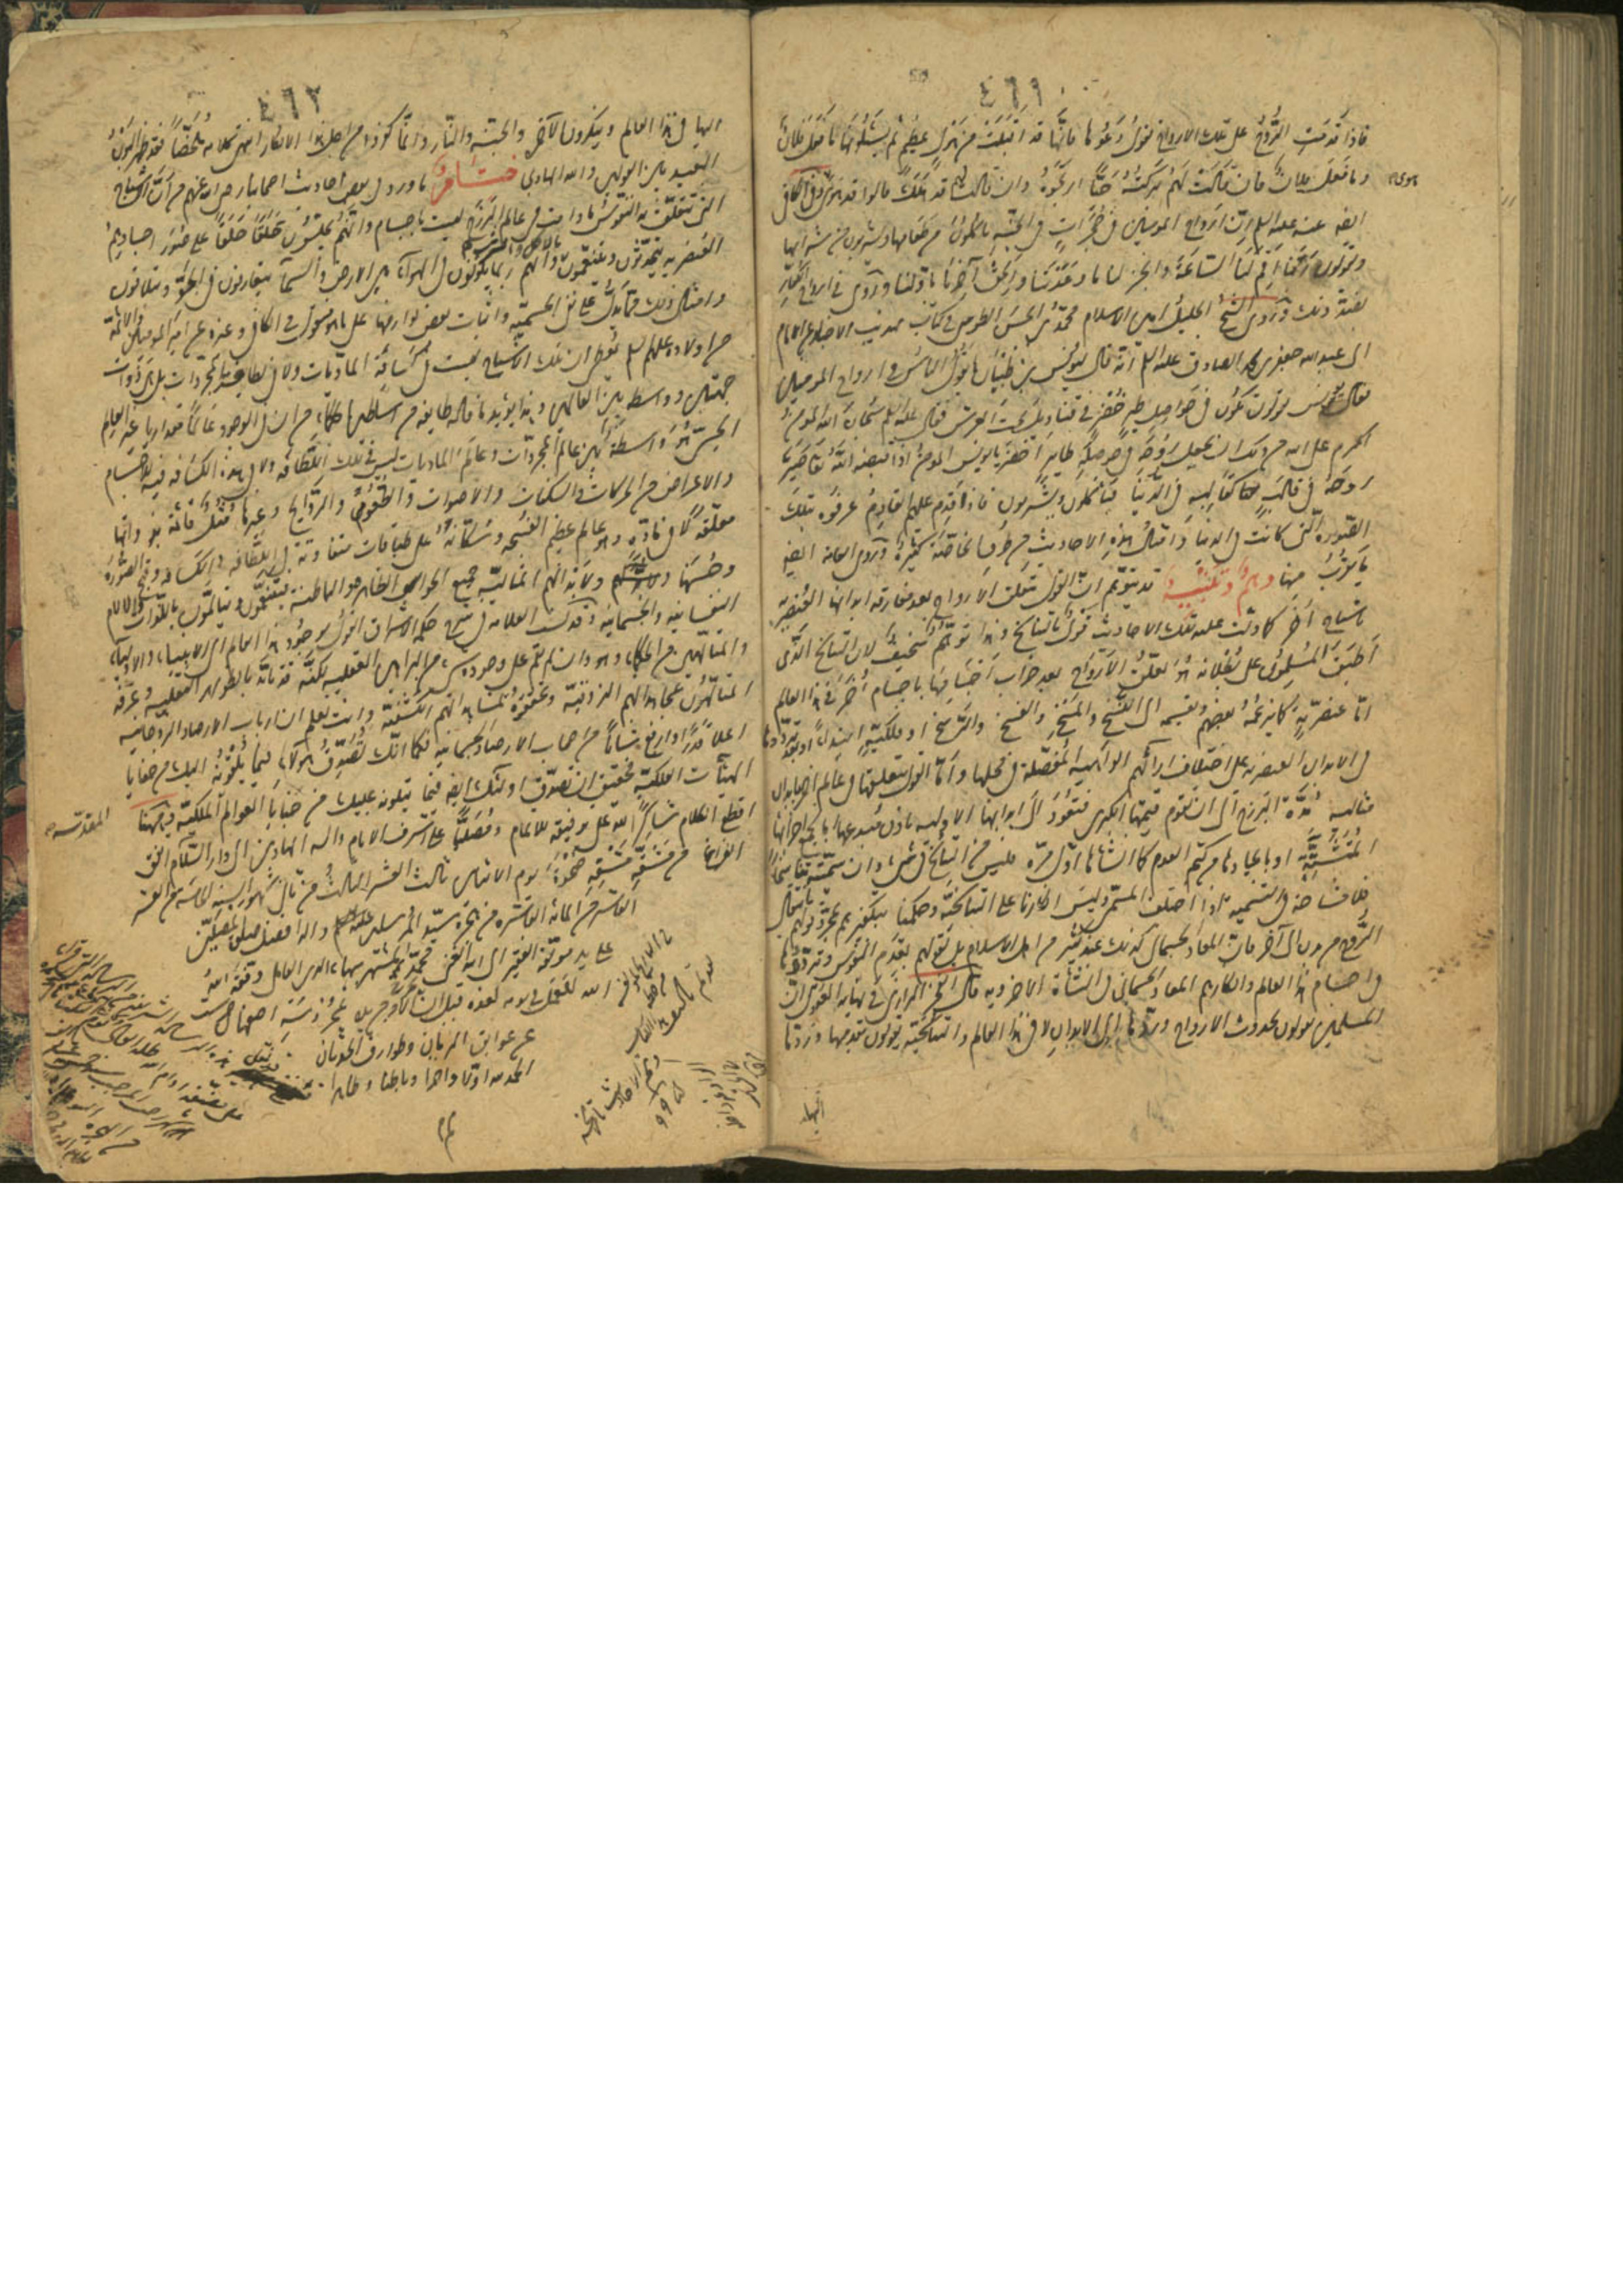 ٤٦١
فاذا قدمت الروح على تلك الارواح تقول دعوها فانها قد اقبلت من هول عظيم ثم يسئلونها ما فعل فلان
وما فعل فلان فان قالت لهم تركته حيا ارتجوه وان قالت لهم قد هلك قالوا قد هوى هوى وفي الكافي
هوى
ايضا عنه عليه السلم ان ارواح المومنين في حجرات في الجنة ياكلون من طعامها ويشربون من شرابها
ويقولون ربنا اقم لنا الساعة وانجز لنا ما وعدتنا والحق آخرنا باولنا وروى في ارواح الكفار
بضد ذلك وروى الشيخ الجليل امين الاسلام محمد بن الحسن الطوسي في كتاب تهذيب الاخبار عن الامام
ابي عبد الله جعفر بن محمد الصادق عليه السلم انه قال ليونس بن ظبيان ما يقول الناس في ارواح المومنين
فقال يونس يقولون تكون في حواصل طير خضر في قناديل تحت العرش فقال عليه السلم سبحان الله المومن
اكرم على الله من ذلك ان يجعل روحه في حوصلة طاير اخضر يا يونس المومن اذا قبضه الله تعالى صير
روحه في قالب كقالبه في الدنيا فياكلون ويشربون فاذا قدم عليهم القادم عرفوه بتلك
الصورة التي كانت في الدنيا وامثال هذه الاحاديث من طرق الخاصة كثيرة وروى العامة ايضا
ما يقرب منها وهم وتنبيه قد يتوهم ان القول بتعلق الارواح بعد مفارقة ابدانها العنصرية
باشباح اخر كما دلت عليه تلك الاحاديث قول بالتناسخ وهذا توهم سخيف لان التناسخ الذي
اطبق المسلمون على بطلانه هو تعلق الارواح بعد خراب اجسامها باجسام اخر في هذا العالم
اما عنصرية كما يزعمه بعضهم ويقسمه الى النسخ والمسخ والفسخ والرسخ او فلكية ابتداء او بعد ترددها
في الابدان العنصرية على اختلاف آرائهم الواهية المفصلة في محلها واما القول بتعلقها في عالم آخر بابدان
مثالية مدة البرزخ الى ان تقوم قيمتها الكبرى فتعود الى ابدانها الاولية باذن مبدعها اما بجمع اجزائها
المتشتتة او بايجادها من كتم العدم كما انشاها اول مرة فليس من التناسخ في شيء وان سميته تناسخا
فلا مشاحة في التسمية اذا اختلف المسمى وليس انكارنا على التناسخية وحكمنا بتكفيرهم بمجرد قولهم بانتقال
الروح من بدن الى آخر فان المعاد الجسماني كذلك عند كثير من اهل الاسلام بل بقولهم بقدم النفوس وترددها
في اجسام هذا العالم وانكارهم المعاد الجسماني في النشأة الاخروية قال الفخر الرازي في نهاية العقول ان
المسلمين يقولون بحدوث الارواح وردها الى الابدان لا في هذا العالم والتناسخية يقولون بقدمها وردها
اليها
٤٦٢
اليها في هذا العالم وينكرون الآخرة والجنة والنار وانما كفروا من اجل هذا الانكار انتهى كلامه ملخصا فقد ظهر البون
البعيد بين القولين والله الهادي خاتمة ما ورد في بعض احاديث اصحابنا رضي الله عنهم من ان الاشباح
التي تتعلق بها النفوس ما دامت في عالم البرزخ ليست باجسام وانهم يجلسون حلقا حلقا على صور اجسادهم
العنصرية يتحدثون ويتنعمون بالاكل والشرب وانهم ربما يكونون في الهواء بين الارض والسماء يتعارفون في الجو ويتلاقون
وامثال ذلك مما يدل على نفي الجسمية واثبات بعض لوازمها على ما هو منقول في الكافي وغيره عن امير المومنين والائمة
من اولاده عليهم السلم يعطي ان تلك الاشباح ليست في كثافة الماديات ولا في لطافة المجردات بل هي ذوات
جهتين وواسطة بين العالمين وهذا يؤيد ما قاله طايفة من اساطين الحكماء من ان في الوجود عالما مقداريا غير العالم
الحسي هو واسطة بين عالم المجردات وعالم الماديات ليس في تلك اللطافة ولا في هذه الكثافة فيه للاجسام
والاعراض من الحركات والسكنات والاصوات والطعوم والروايح وغيرها مثل قائمة بذواتها
معلقة لا في مادة وهو عالم عظيم الفسحة وسكانه على طبقات متفاوتة في اللطافة والكثافة وقبح الصورة
وحسنها ولابدانهم المثالية جميع الحواس الظاهرة والباطنة يتنعمون ويتالمون باللذات والالام
النفسانية والجسمانية وقد نسب العلامة في شرح حكمة الاشراق القول بوجود هذا العالم الى الانبياء والاولياء
والمتالهين من الحكماء وهو وان لم يقم على وجوده شيء من البراهين العقلية لكنه قد تايد بالظواهر النقلية وعرفه
المتالهون بمجاهداتهم الذوقية وتحققوه بمشاهداتهم الكشفية وانت تعلم ان ارباب الارصاد الروحانية
اعلى قدرا وارفع شانا من اصحاب الارصاد الجسمانية فكما انك تصدق هؤلاء فيما يلقونه اليك من خفايا
الهيآت الفلكية فحقيق ان تصدق اولئك ايضا فيما يتلونه عليك من خبايا العوالم الملكية وههنا
المقدسة
اقطع الكلام شاكرا لله على توفيقه للاتمام ومصليا على اشرف الانام واله الهادين الى دار السلام اتفق
الفراغ من مشقه ضحوة يوم الاثنين ثالث العشر الثالث من ثاني شهور السنة الخامسة من العشر
العاشر من المائة العاشرة من هجرة سيد المرسلين عليه واله افضل صلوة المصلين
على يد مولفه الفقير الى الله الغني محمد المشتهر ببهاء الدين العاملي وفقه الله
للعمل في يومه لغده قبل ان يخرج الامر من يده بمحروسة اصفهان صينت
عن عوايق الزمان وطوارق الحدثان
الحمد لله اولا واخرا وباطنا وظاهرا
تم
٩٩٥